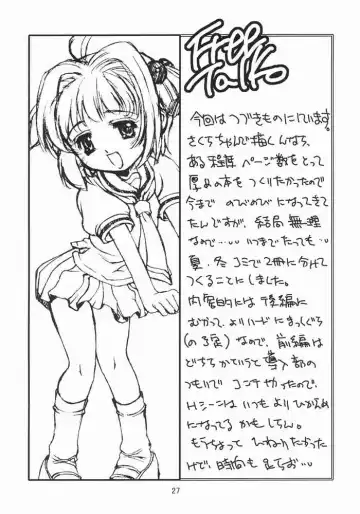 Free
Talk
今回はつづきものにしています。
さくらちゃんで描くんなら、
ある程度ページ数をとって
厚みの本をつくりたかったので
今まで のびのびになってきて
たんですが、結局 無理
なので…‥いつまでたっても‥
夏、冬コミで2冊に分けて
つくることにしました。
内容的には後編に
むかって、よりハードにまっしぐら
(の予定)なので、前編は
どちらかていうと導入部の
つもりで コンテやったので、
Hシーンは いつも よりひかえめ
になってる かも しらん。
もうちょって ひねりたかった
けど、時間も
27